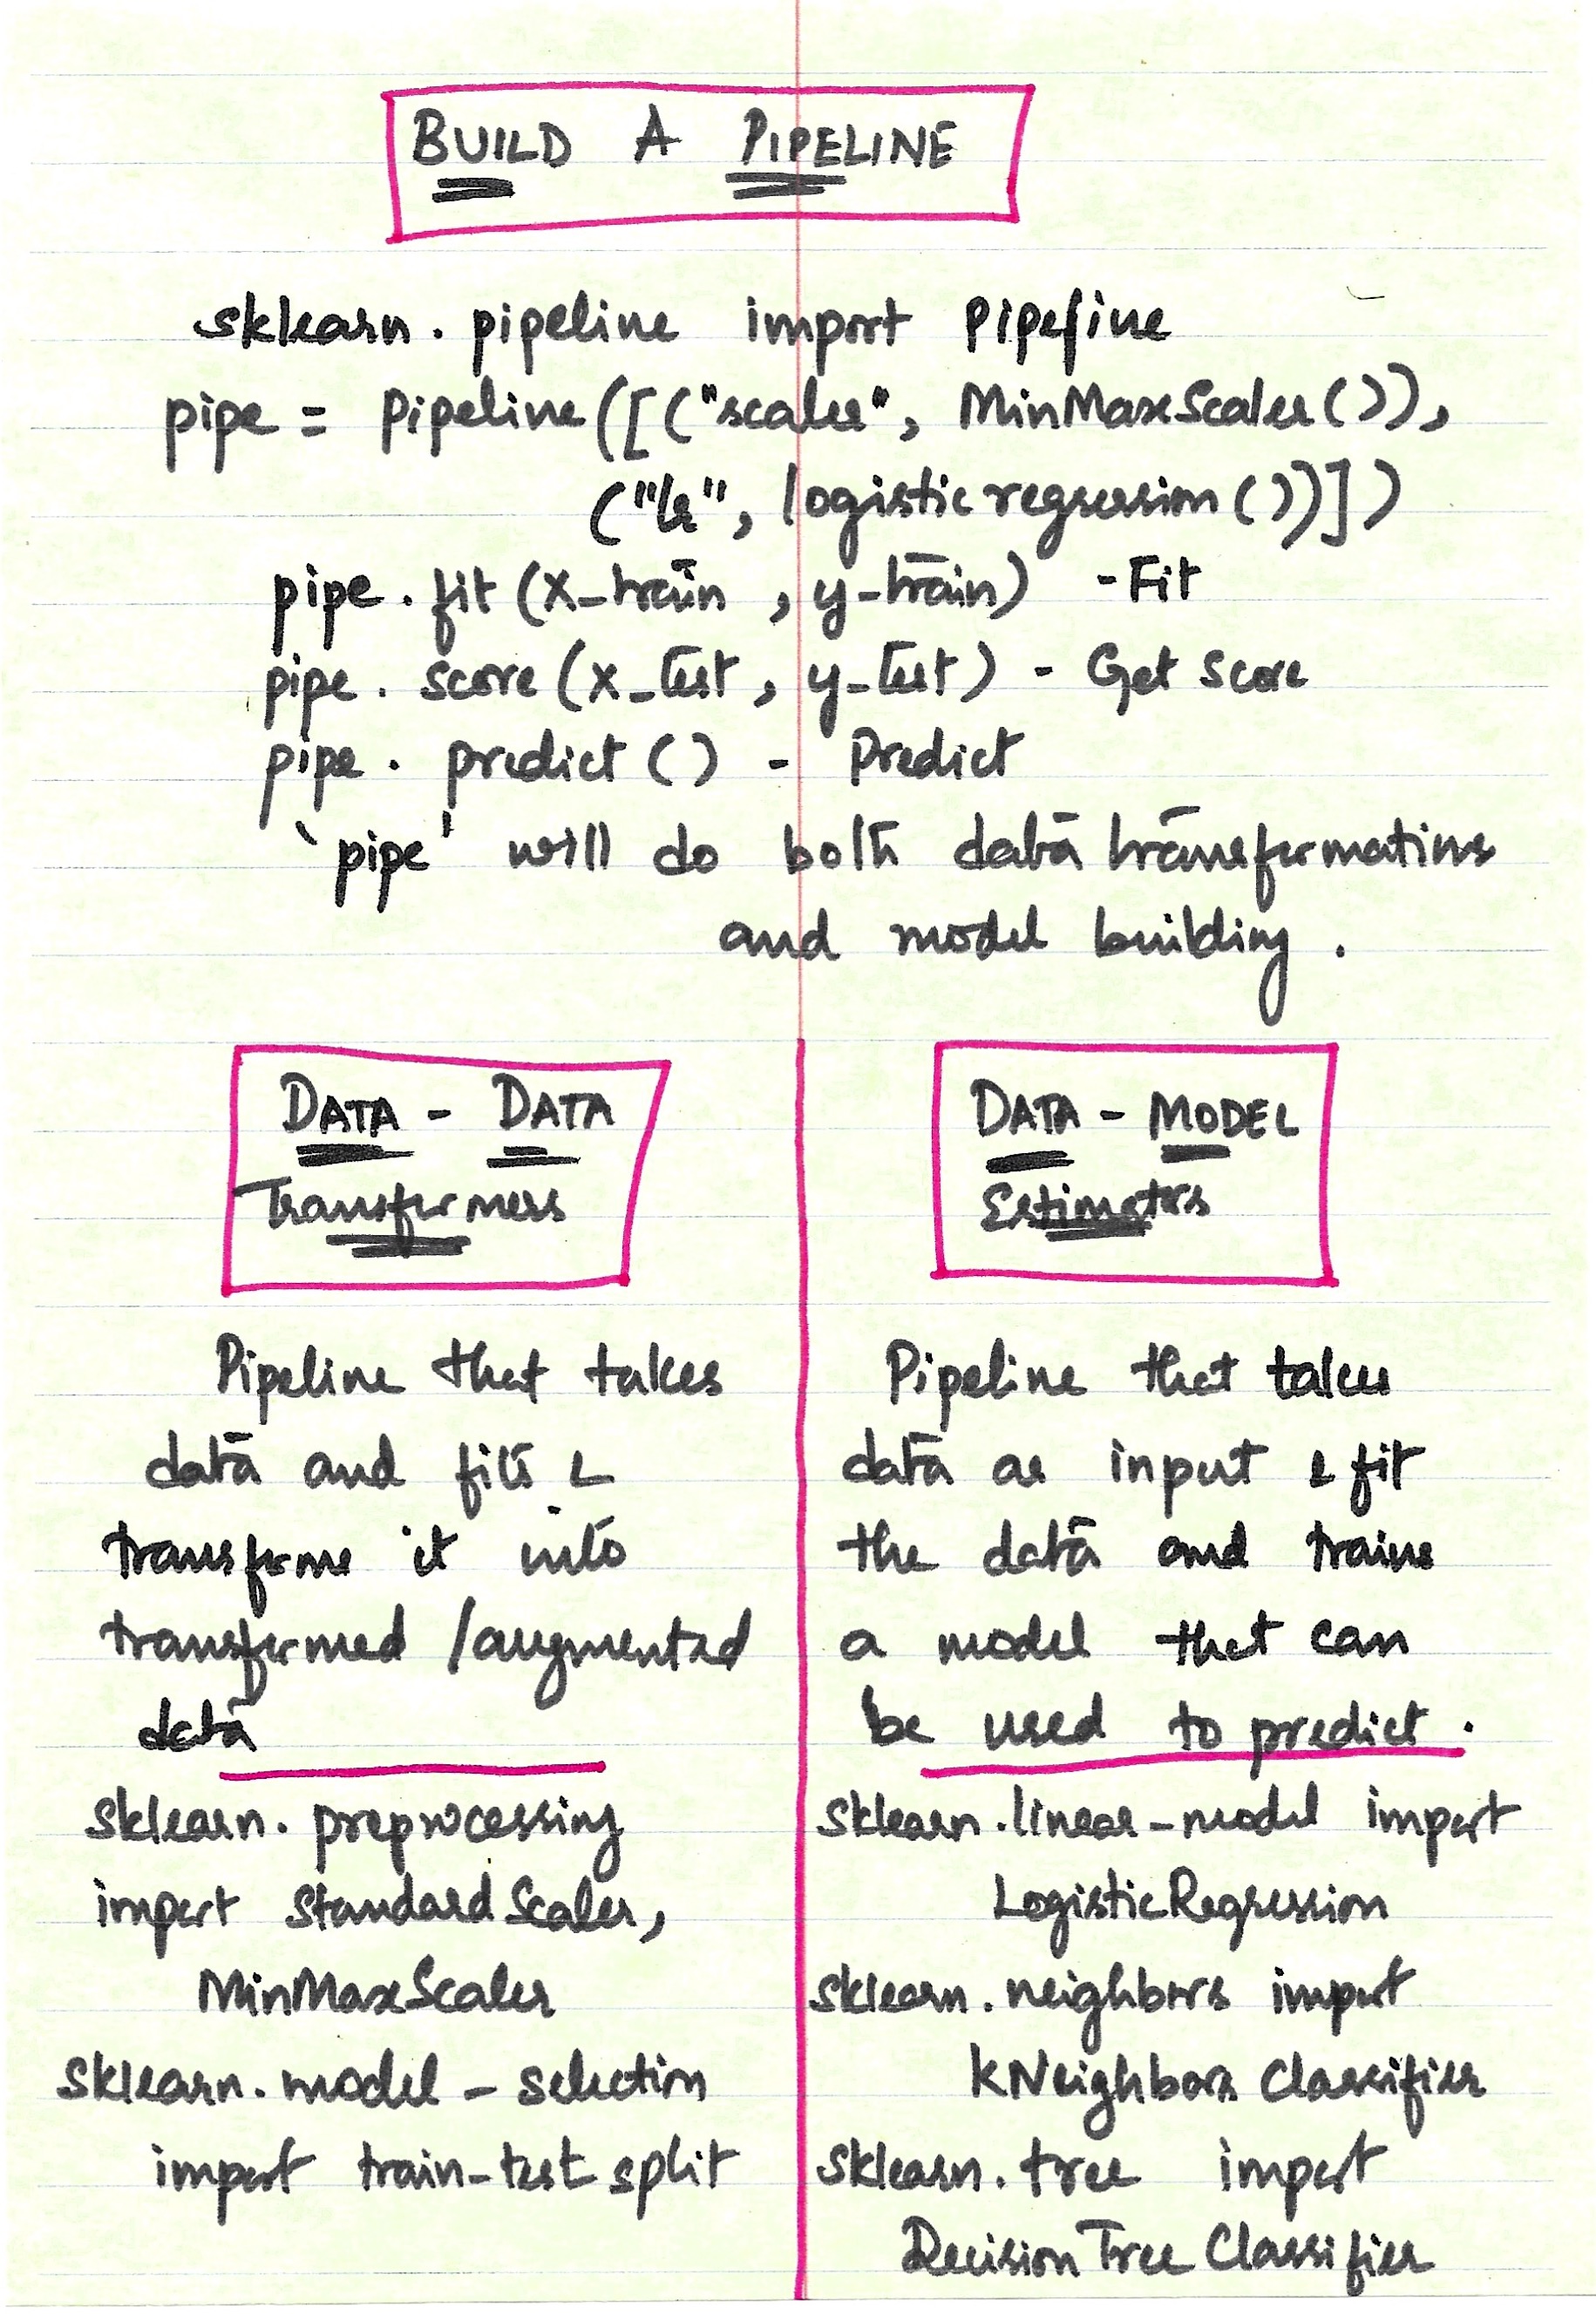 BUILD A PIPELINE
sklearn. pipeline import Pipeline
pipe = Pipeline([("scaler", MinMaxScaler()),
("lr", logisticregression())])
pipe. fit (X_train , y_train) - Fit
pipe. score (x_test , y_test) - Get score
pipe. predict () - Predict
'pipe' will do both data transformations
and model building .
DATA - DATA
Transformers
Pipeline that takes
data and fits &
transforms it into
transformed /augmented
data
sklearn. preprocessing
import StandardScaler,
MinMaxScaler
sklearn. model - selection
import train-test split
DATA - MODEL
Estimators
Pipeline that takes
data as input & fit
the data and trains
a model that can
be used to predict .
sklearn .linear_model import
LogisticRegression
sklearn. neighbors import
KNeighbors Classifier
sklearn. tree import
DecisionTree Classifier